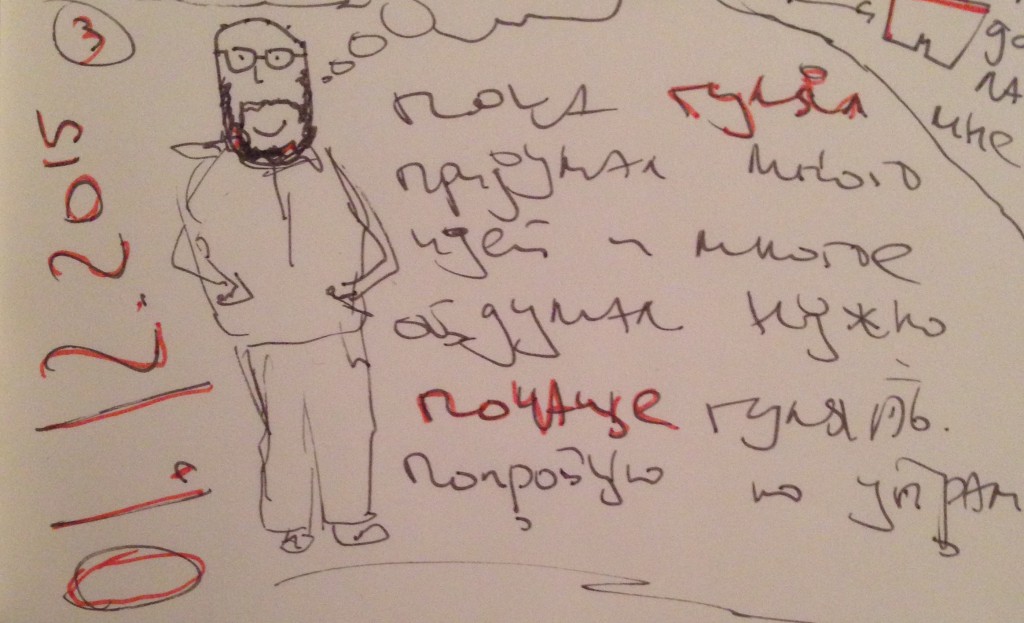 3
01.12.2015
пока гулял
придумал много
идей и многое
обдумал нужно
почаще гулять.
попробую по утрам
п
мне